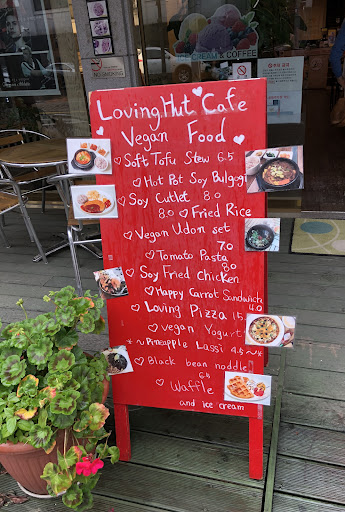 ICE CREAM & COFFEE
NO SMOKING
Loving Hut Cafe
Vegan Food
Soft Tofu Stew 6.5
Hot Pot Soy Bulgogi
Soy Cutlet 8.0
8.0 Fried Rice
Vegan Udon set
7.0
Tomato Pasta
8.0
Soy Fried chicken
Happy Carrot Sandwich
4.0
Loving Pizza 15.
vegan Yogurt
*~Pineapple Lassi 4.5~*
Black bean noddle
6.5
Waffle
and ice cream